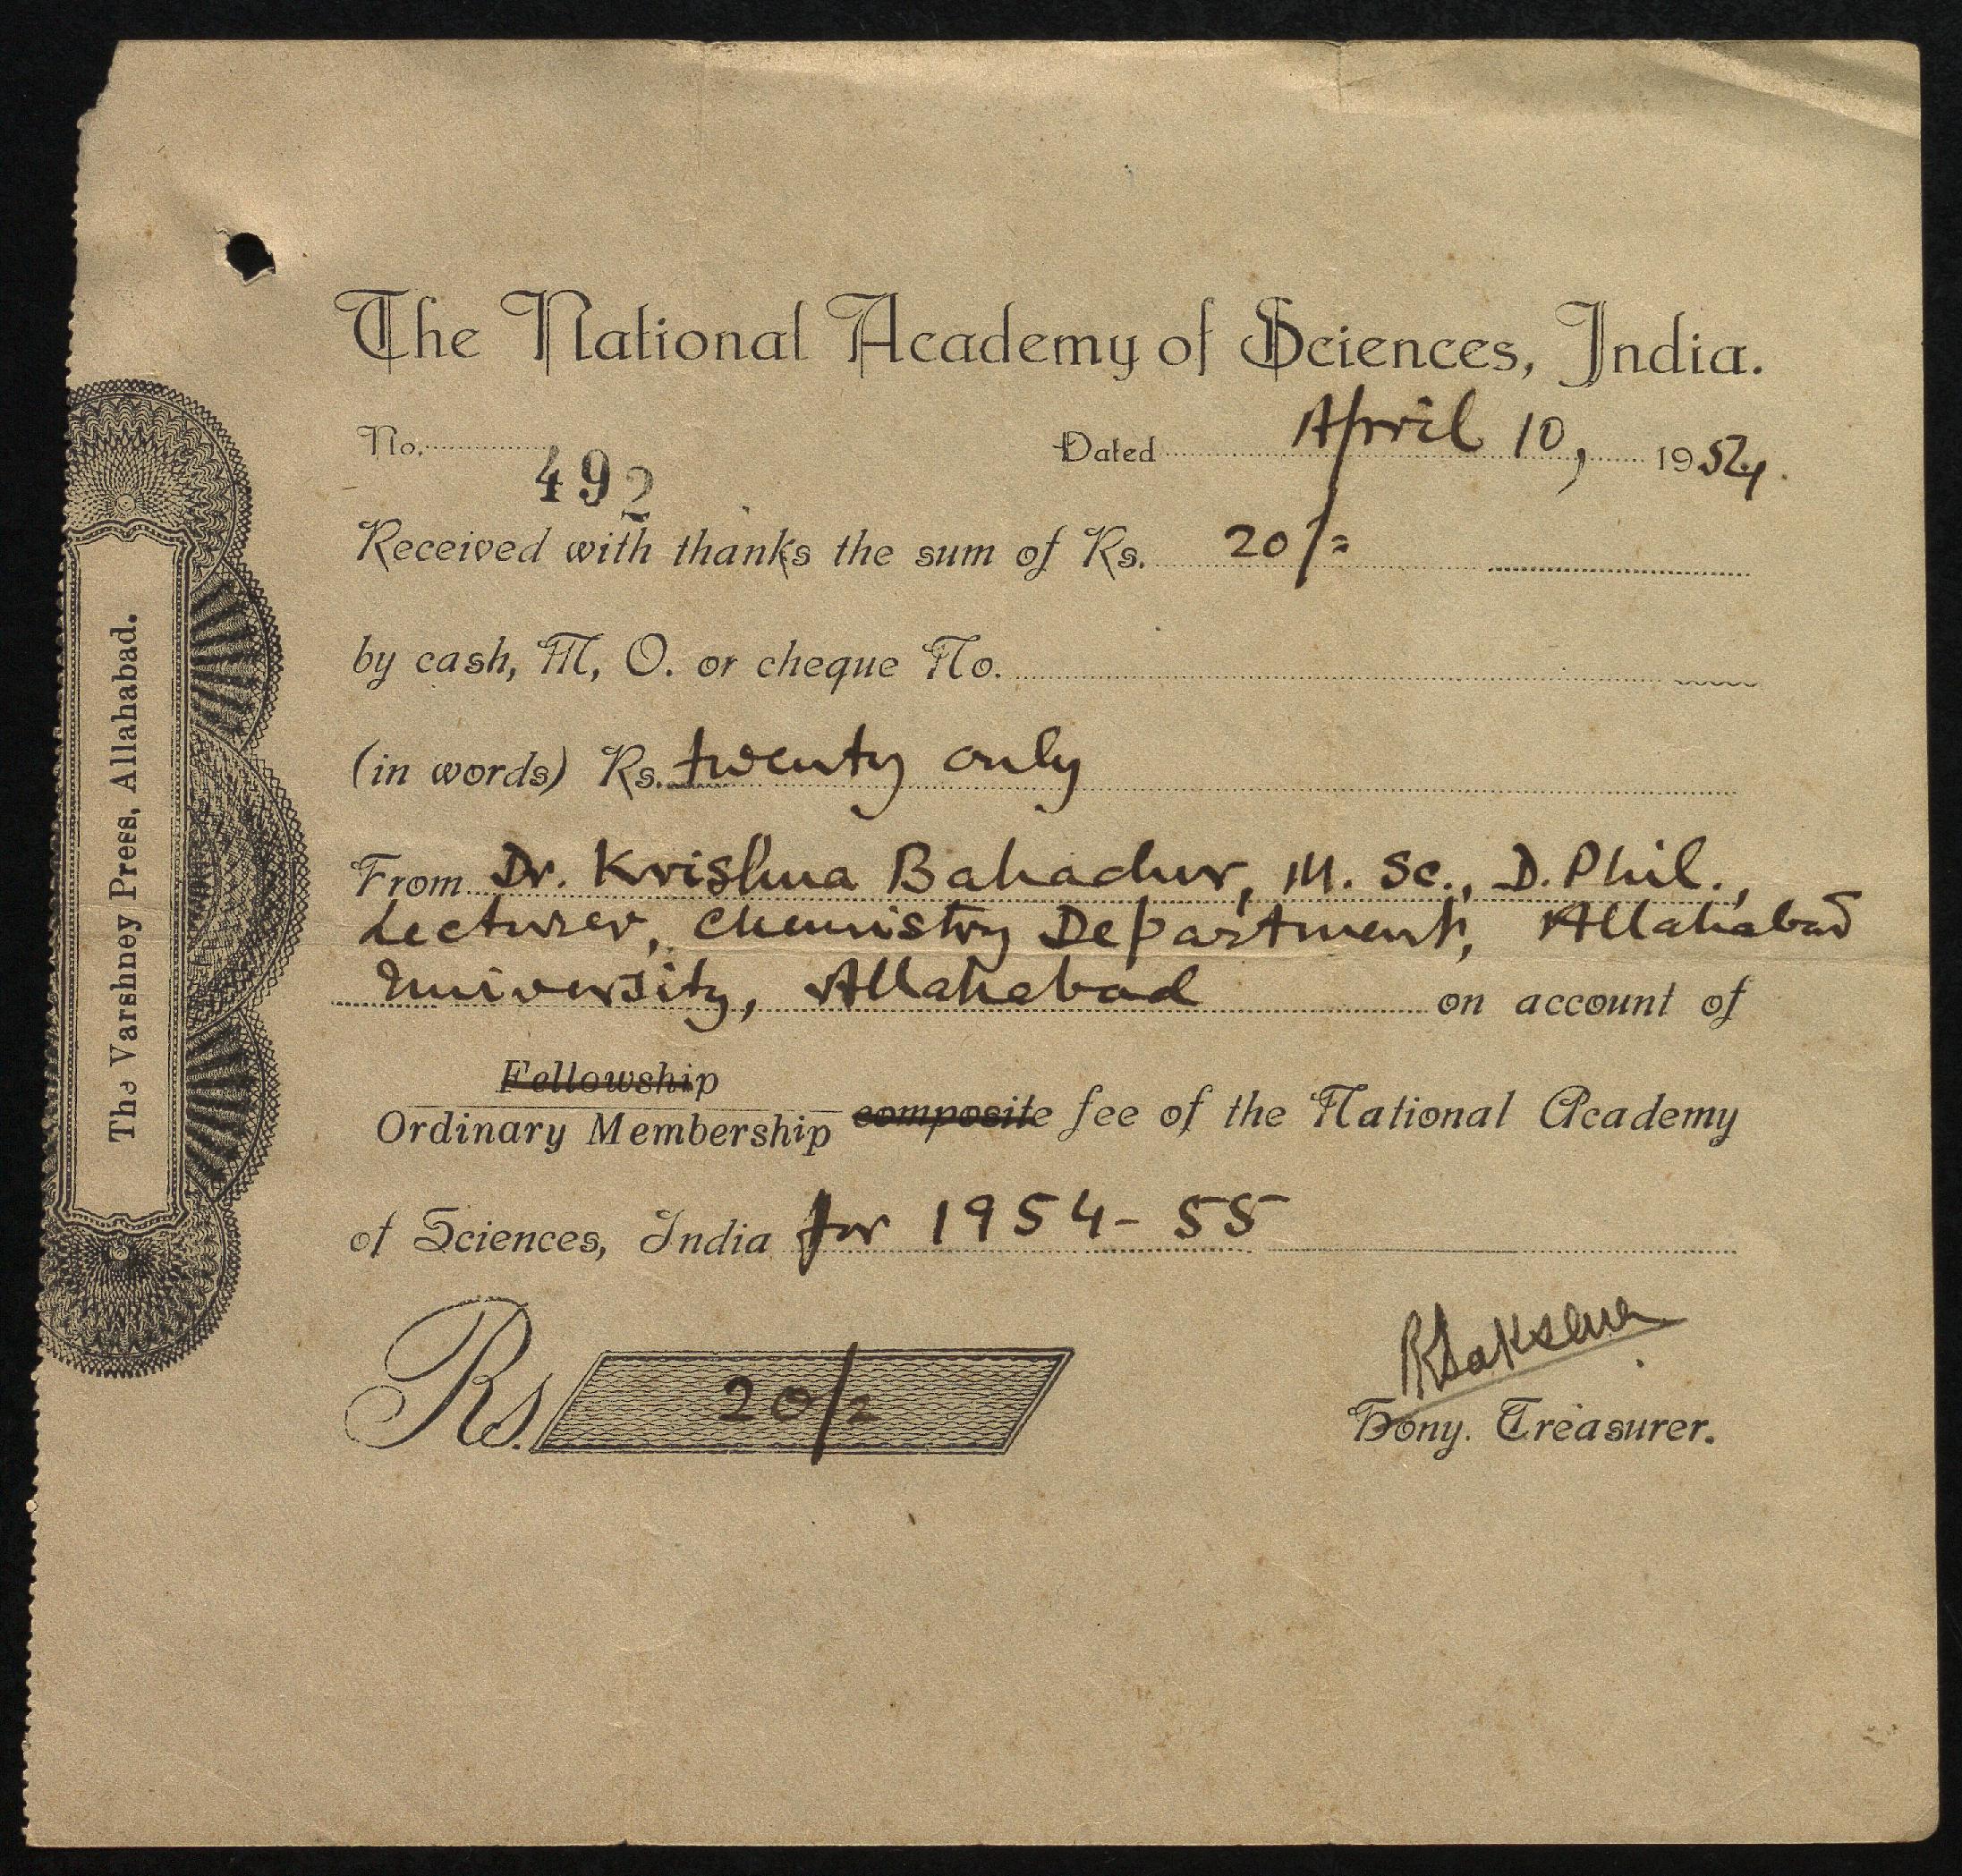 The National Academy of Sciences, India.
No. 492 Dated April 10, 1954.
Received with thanks the sum of Rs. 20/=
by cash, M, O. or cheque No.
(in words) Rs. twenty only
From Dr. Krishna Bahadur, M. Sc., D. Phil.,
Lecturer, Chemistry Department, Allahabad
University, Allahabad on account of
Fellowship
Ordinary Membership composite fee of the National Academy
of Sciences, India for 1954-55
Rs. 20/=
RSaksena
Hony. Treasurer.
The Varshney Press, Allahabad.